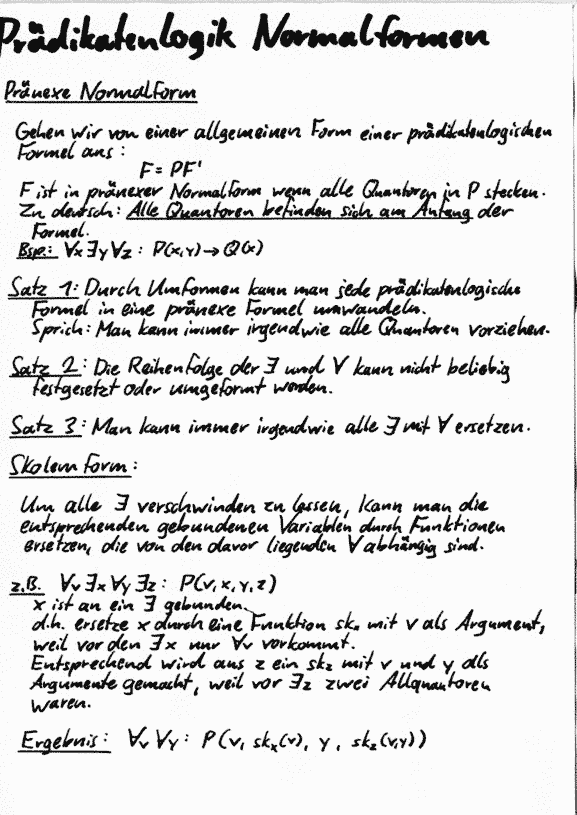 Prädikatenlogik Normalformen
Pränexe Normalform
Gehen wir von einer allgemeinen Form einer prädikatenlogischen
Formel aus:
F = PF'
F ist in pränexer Normalform wenn alle Quantoren in P stecken.
Zu deutsch: Alle Quantoren befinden sich am Anfang der
Formel.
Bsp.: ∀x ∃y ∀z : P(x,y) → Q(x)
Satz 1: Durch Umformen kann man jede prädikatenlogische
Formel in eine pränexe Formel umwandeln.
Sprich: Man kann immer irgendwie alle Quantoren vorziehen.
Satz 2: Die Reihenfolge der ∃ und ∀ kann nicht beliebig
festgesetzt oder umgeformt werden.
Satz 3: Man kann immer irgendwie alle ∃ mit ∀ ersetzen.
Skolem Form:
Um alle ∃ verschwinden zu lassen, kann man die
entsprechenden gebundenen Variablen durch Funktionen
ersetzen, die von den davor liegenden ∀ abhängig sind.
z.B. ∀v ∃x ∀y ∃z : P(v,x,y,z)
x ist an ein ∃ gebunden.
d.h. ersetze x durch eine Funktion skₓ mit v als Argument,
weil vor den ∃x nur ∀v vorkommt.
Entsprechend wird aus z ein sk_z mit v und y als
Argumente gemacht, weil vor ∃z zwei Allquantoren
waren.
Ergebnis: ∀v ∀y : P(v, skₓ(v), y, sk_z(v,y))